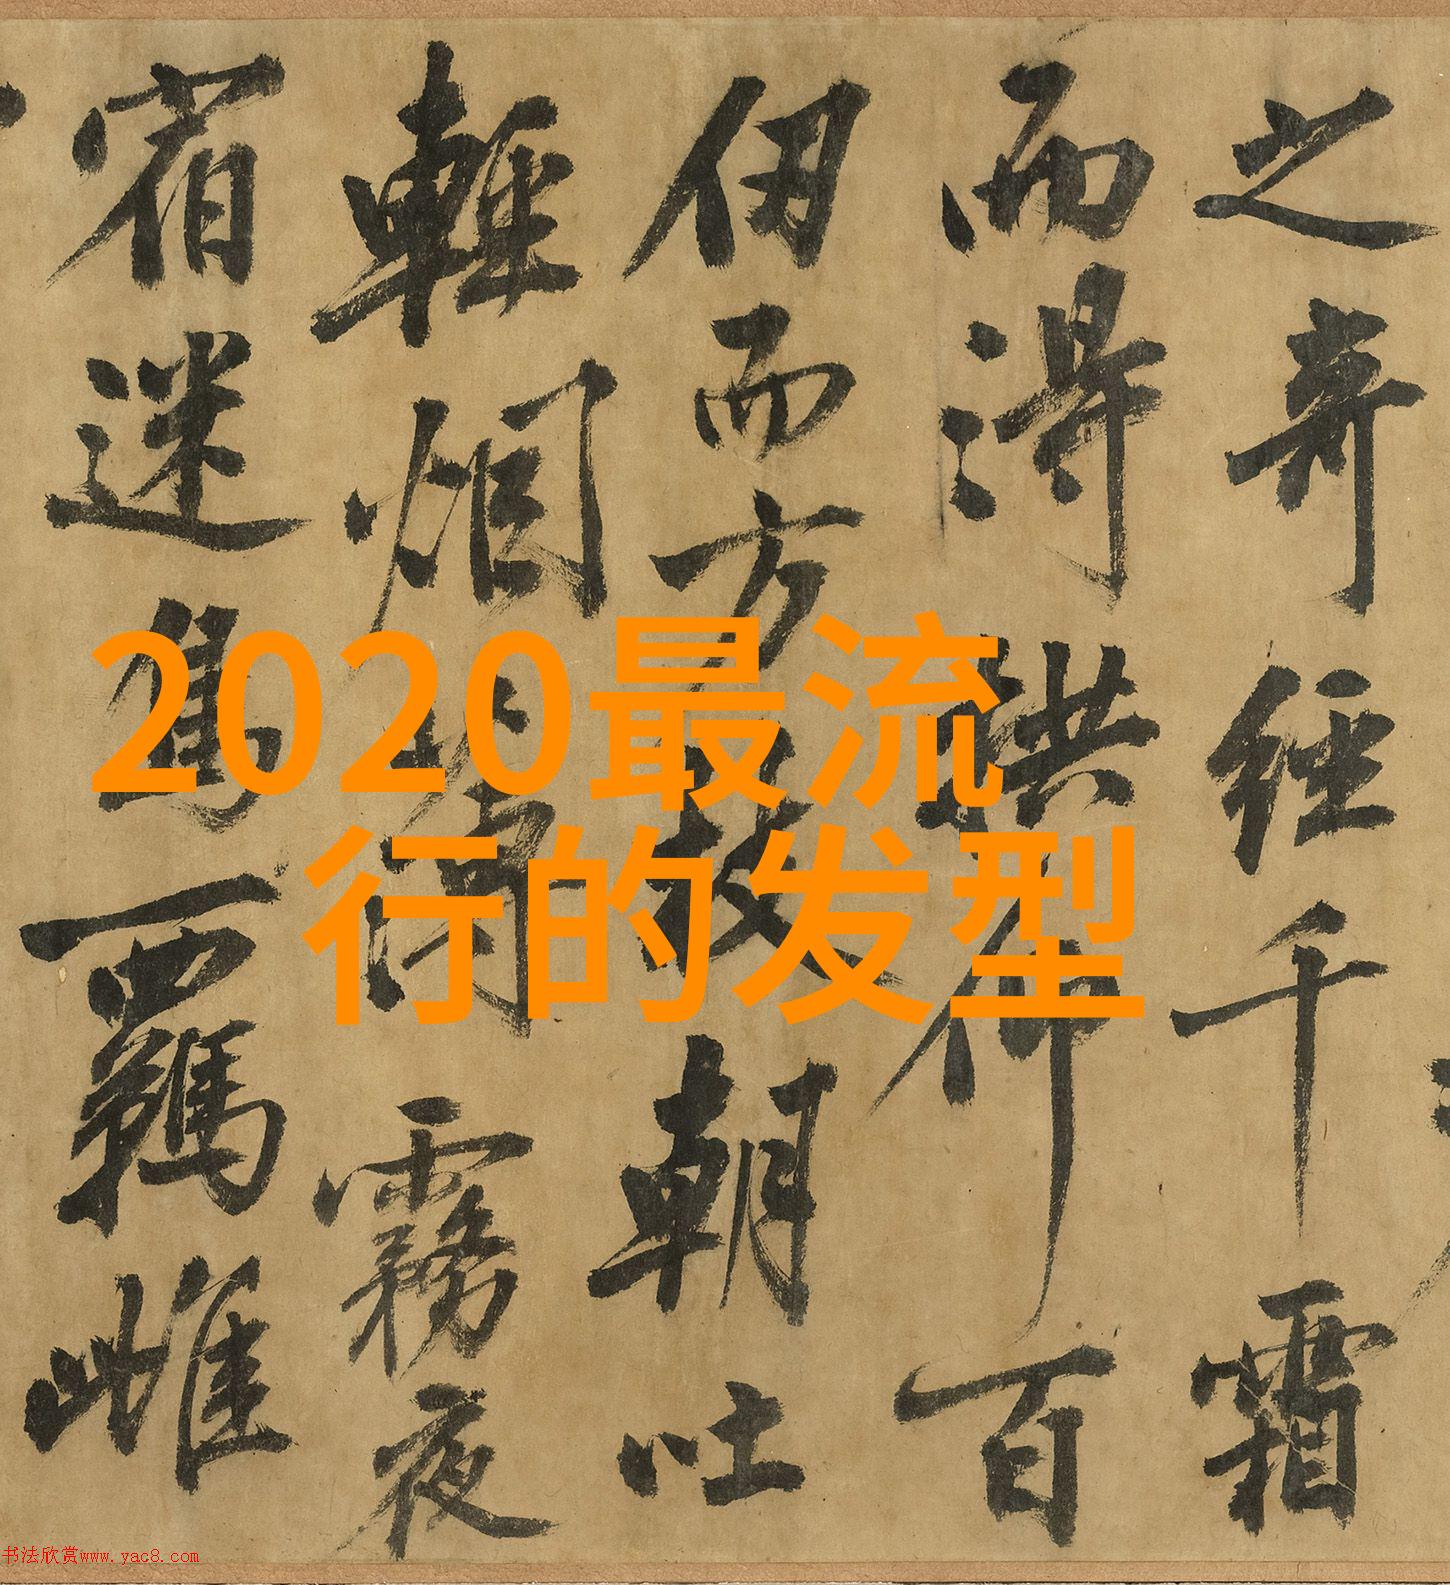 之奇經千霜
而得拱仰百
仞而方枝朝吐
輕烟薄霧夜
宿迷鳥羈雌
2020最流
行的发型
书法欣赏www.yac8.com